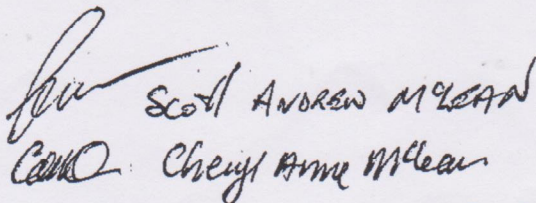 Scott ANDREW McLEAN
Cheryl Anne McLean